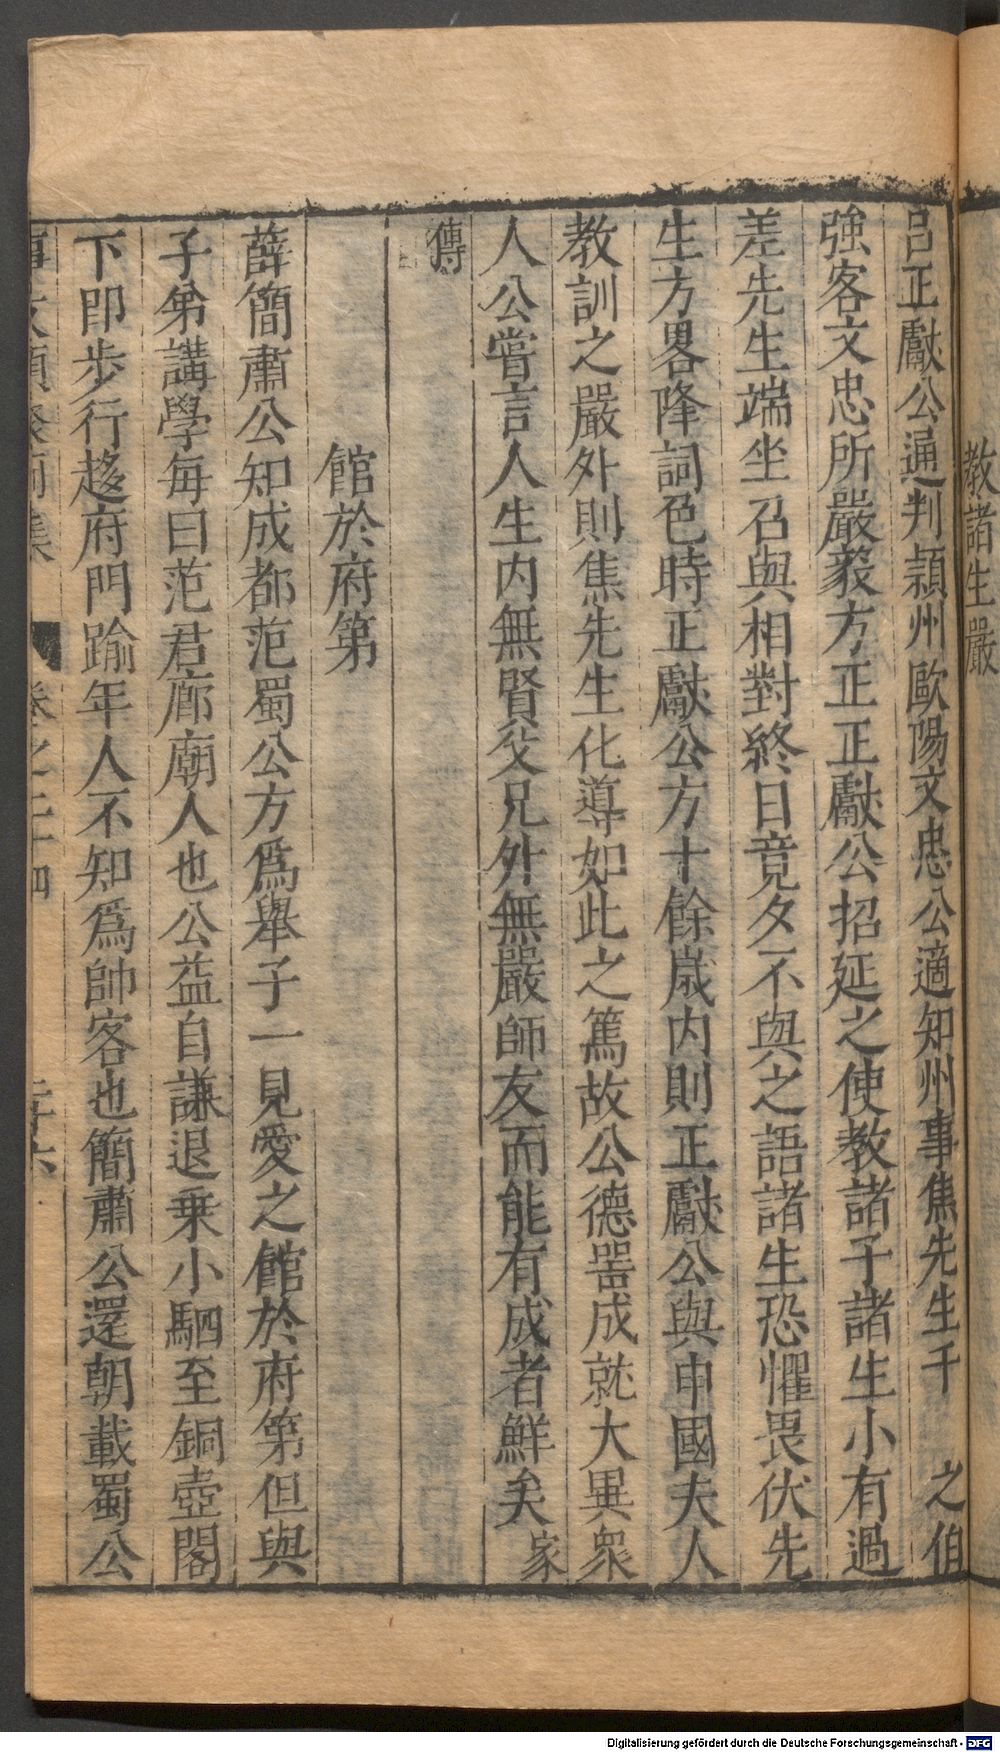 教諸生嚴
呂正獻公通判潁州歐陽文忠公適知州事焦先生千之伯
強客文忠所嚴毅方正正獻公招延之使教諸子諸生小有過
差先生端坐召與相對終日竟夕不與之語諸生恐懼畏伏先
生方畧降詞色時正獻公方十餘歲内則正獻公與申國夫人
教訓之嚴外則焦先生化導如此之篤故公德噐成就大異衆
人公嘗言人生内無賢父兄外無嚴師友而能有成者鮮矣家
傳
館於府第
薛簡肅公知成都范蜀公方爲舉子一見愛之館於府第但與
子弟講學每曰范君廊廟人也公益自謙退乗小駟至銅壺閣
下即步行趍府門踰年人不知爲帥客也簡肅公還朝載蜀公
事文類聚前集 卷之三十四 三十六
Digitalisierung gefördert durch die Deutsche Forschungsgemeinschaft - DFG